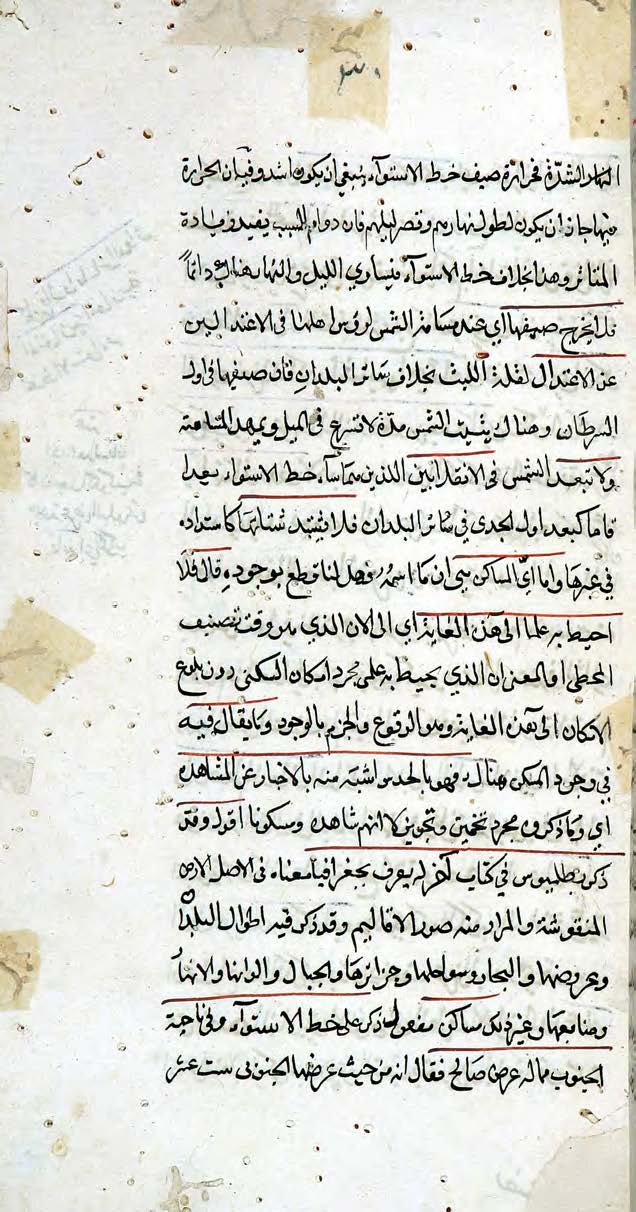 النهار والشدة فحرارة صيف خط الاستوآء ينبغي ان يكون اشد وفيه ان الحرارة
فيها جاز ان يكون لطول نهارهم وقصر ليلهم فان دوام السبب يفيد زيادة
المتاثر وهذا بخلاف خط الاستوآء فيساوي الليل والنهار هناك دائماً
فلا يخرج صيفها اي عند مسامتة الشمس لرؤس اهلها في الاعتدالين
عن الاعتدال لقلة اللبث بخلاف سائر البلدان فان صيفها في اول
السرطان وهناك يثبت الشمس مدة لا تسرع في الميل ويمهد المسامتة
ولا تبعد الشمس في الانقلابين اللذين هما شتآء خط الاستواء بعدا
فاما كبعد اول الجدي في سائر البلدان فلا يشتد شتائها كاشتداده
في غيرها واما اي الساكن هي ان ما اسمه فصل لنا قطع بوجوده قال فلا
احيط به علما الى هذه الغاية اي الى الان الذي هو وقت تصنيف
المجطي او المعنى ان الذي يحيط به على مجرد امكان السكنى دون بلوغ
الامكان الى هذه الغاية وهو الوقوع والجزم بالوجود وما يقال فيه
في وجود المسكن هنالك فهو بالحدس اشبه منه بالاخبار عن المشاهدة
اي وما ذكروه مجرد تخمين وتجويز لا انهم شاهده وسكونا اقول وقد
ذكر بطلميوس في كتاب آخر له يعرف بجغرافيا معناه في الاصل الارض
المنقوشة والمراد منه صور الاقاليم وقد ذكر فيه اطوال البلدان
وعروضها والبحار وسواحلها وجزائرها والجبال والوانها والانهار
ومنابعها وغير ذلك مساكن مفعول ذكر على خط الاستوآء وفي ناحية
الجنوب مما له عرض صالح فقال انه من حيث عرضها الجنوبي ست عشر